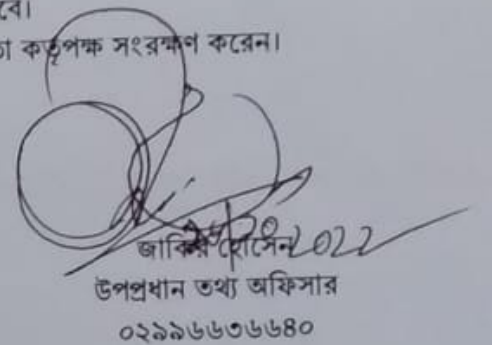 বে।
তা কর্তৃপক্ষ সংরক্ষণ করেন।
2022
জাকির হোসেন
উপপ্রধান তথ্য অফিসার
০২৯৯৬৬৩৬৬৪০